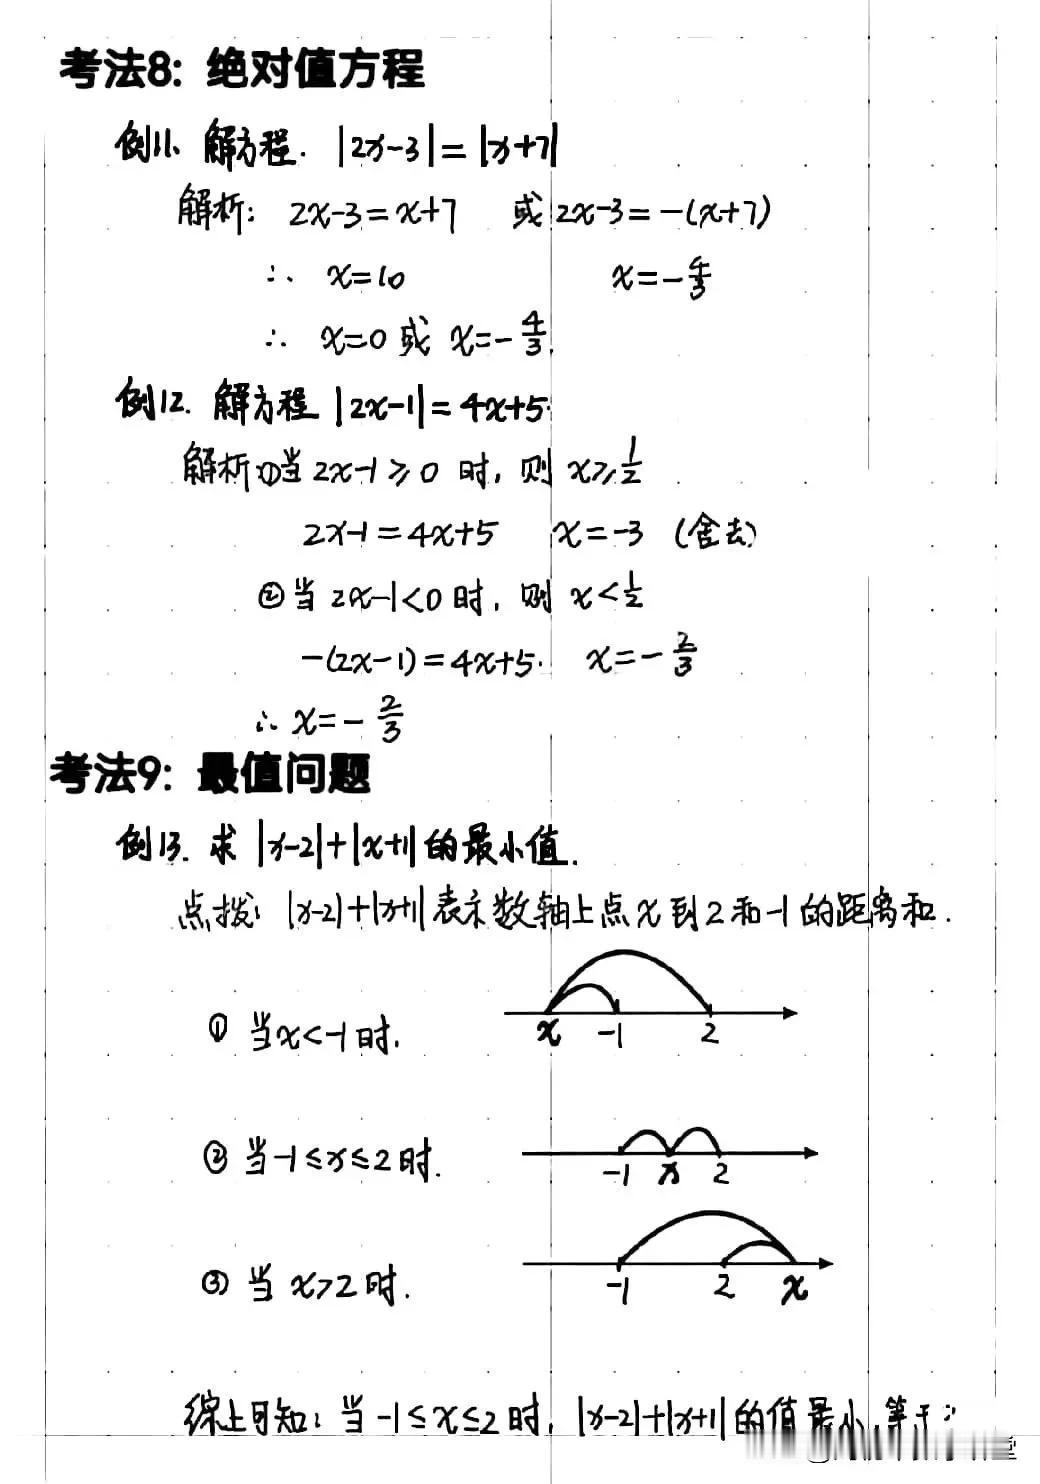 考法8: 绝对值方程
例11. 解方程. |2x-3|=|x+7|
解析: 2x-3=x+7 或 2x-3=-(x+7)
∴ x=10 x=-4/3
∴ x=0 或 x=-4/3.
例12. 解方程 |2x-1|=4x+5.
解析①当 2x-1≥0 时, 则 x≥1/2
2x-1=4x+5 x=-3 (舍去)
②当 2x-1<0 时, 则 x<1/2
-(2x-1)=4x+5. x=-2/3
∴ x=-2/3
考法9: 最值问题
例13. 求 |x-2|+|x+1| 的最小值.
点拨: |x-2|+|x+1| 表示数轴上点 x 到 2 和 -1 的距离和.
① 当 x<-1 时.
x -1 2
② 当 -1≤x≤2 时.
-1 x 2
③ 当 x>2 时.
-1 2 x
综上可知: 当 -1≤x≤2 时, |x-2|+|x+1| 的值最小, 等于